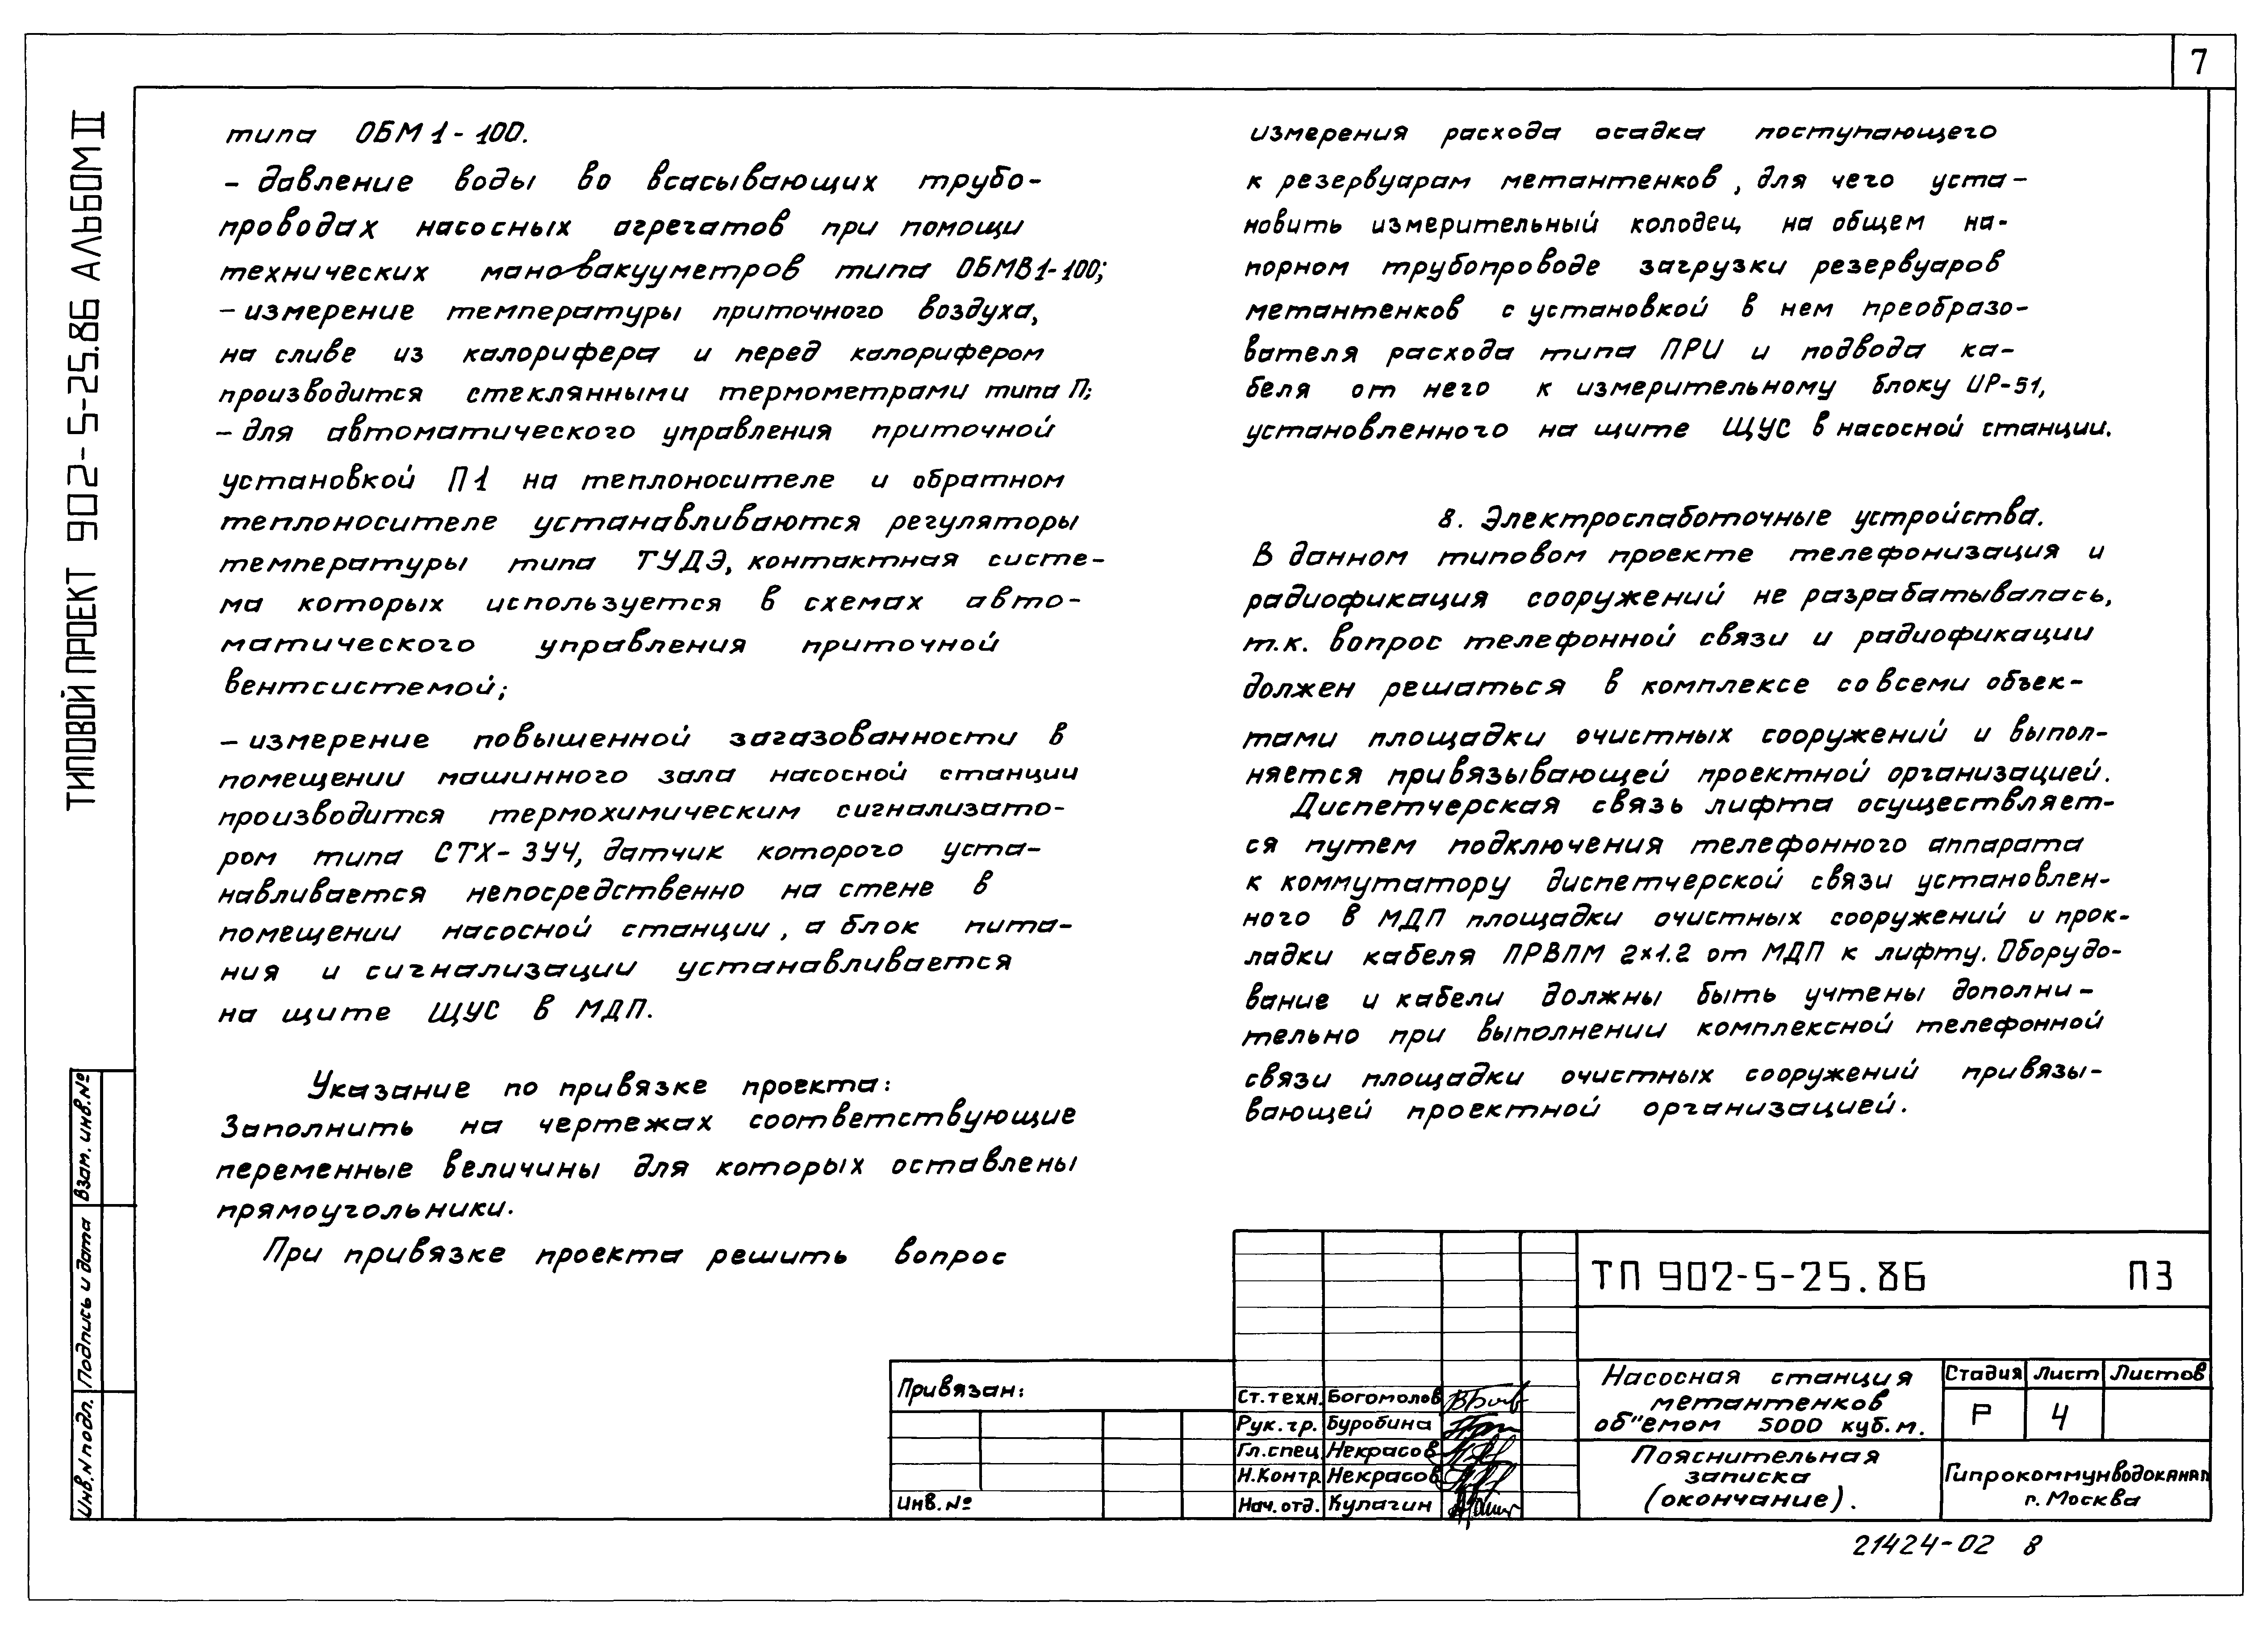 7
ТИПОВОЙ ПРОЕКТ 902-5-25.86 АЛЬБОМ II
типа ОБМ1-100.
- давление воды во всасывающих трубо-
проводах насосных агрегатов при помощи
технических мановакууметров типа ОБМВ1-100;
- измерение температуры приточного воздуха,
на сливе из калорифера и перед калорифером
производится стеклянными термометрами типа П;
- для автоматического управления приточной
установкой П1 на теплоносителе и обратном
теплоносителе устанавливаются регуляторы
температуры типа ТУДЭ, контактная систе-
ма которых используется в схемах авто-
матического управления приточной
вентсистемой;
- измерение повышенной загазованности в
помещении машинного зала насосной станции
производится термохимическим сигнализато-
ром типа СТХ-3У4, датчик которого уста-
навливается непосредственно на стене в
помещении насосной станции, а блок пита-
ния и сигнализации устанавливается
на щите ЩУС в МДП.
Указание по привязке проекта:
Заполнить на чертежах соответствующие
переменные величины для которых оставлены
прямоугольники.
При привязке проекта решить вопрос
измерения расхода осадка поступающего
к резервуарам метантенков, для чего уста-
новить измерительный колодец на общем на-
порном трубопроводе загрузки резервуаров
метантенков с установкой в нем преобразо-
вателя расхода типа ПРИ и подвода ка-
беля от него к измерительному блоку ИР-51,
установленного на щите ЩУС в насосной станции.
8. Электрослаботочные устройства.
В данном типовом проекте телефонизация и
радиофикация сооружений не разрабатывалась,
т.к. вопрос телефонной связи и радиофикации
должен решаться в комплексе со всеми объек-
тами площадки очистных сооружений и выпол-
няется привязывающей проектной организацией.
Диспетчерская связь лифта осуществляет-
ся путем подключения телефонного аппарата
к коммутатору диспетчерской связи установлен-
ного в МДП площадки очистных сооружений и прок-
ладки кабеля ПРВПМ 2х1.2 от МДП к лифту. Оборудо-
вание и кабели должны быть учтены дополни-
тельно при выполнении комплексной телефонной
связи площадки очистных сооружений привязы-
вающей проектной организацией.
Взам. инв.№
Подпись и дата
Инв.N подл.
Привязан:
Инв.№
Ст.техн. Богомолов
Рук.гр. Буробина
Гл.спец. Некрасов
Н.Контр. Некрасов
Нач.отд. Кулагин
ТП 902-5-25.86 ПЗ
Насосная станция
метантенков
об"емом 5000 куб.м.
Стадия Лист Листов
Р 4
Пояснительная
записка
(окончание).
Гипрокоммунводоканал
г. Москва
21424-02 8